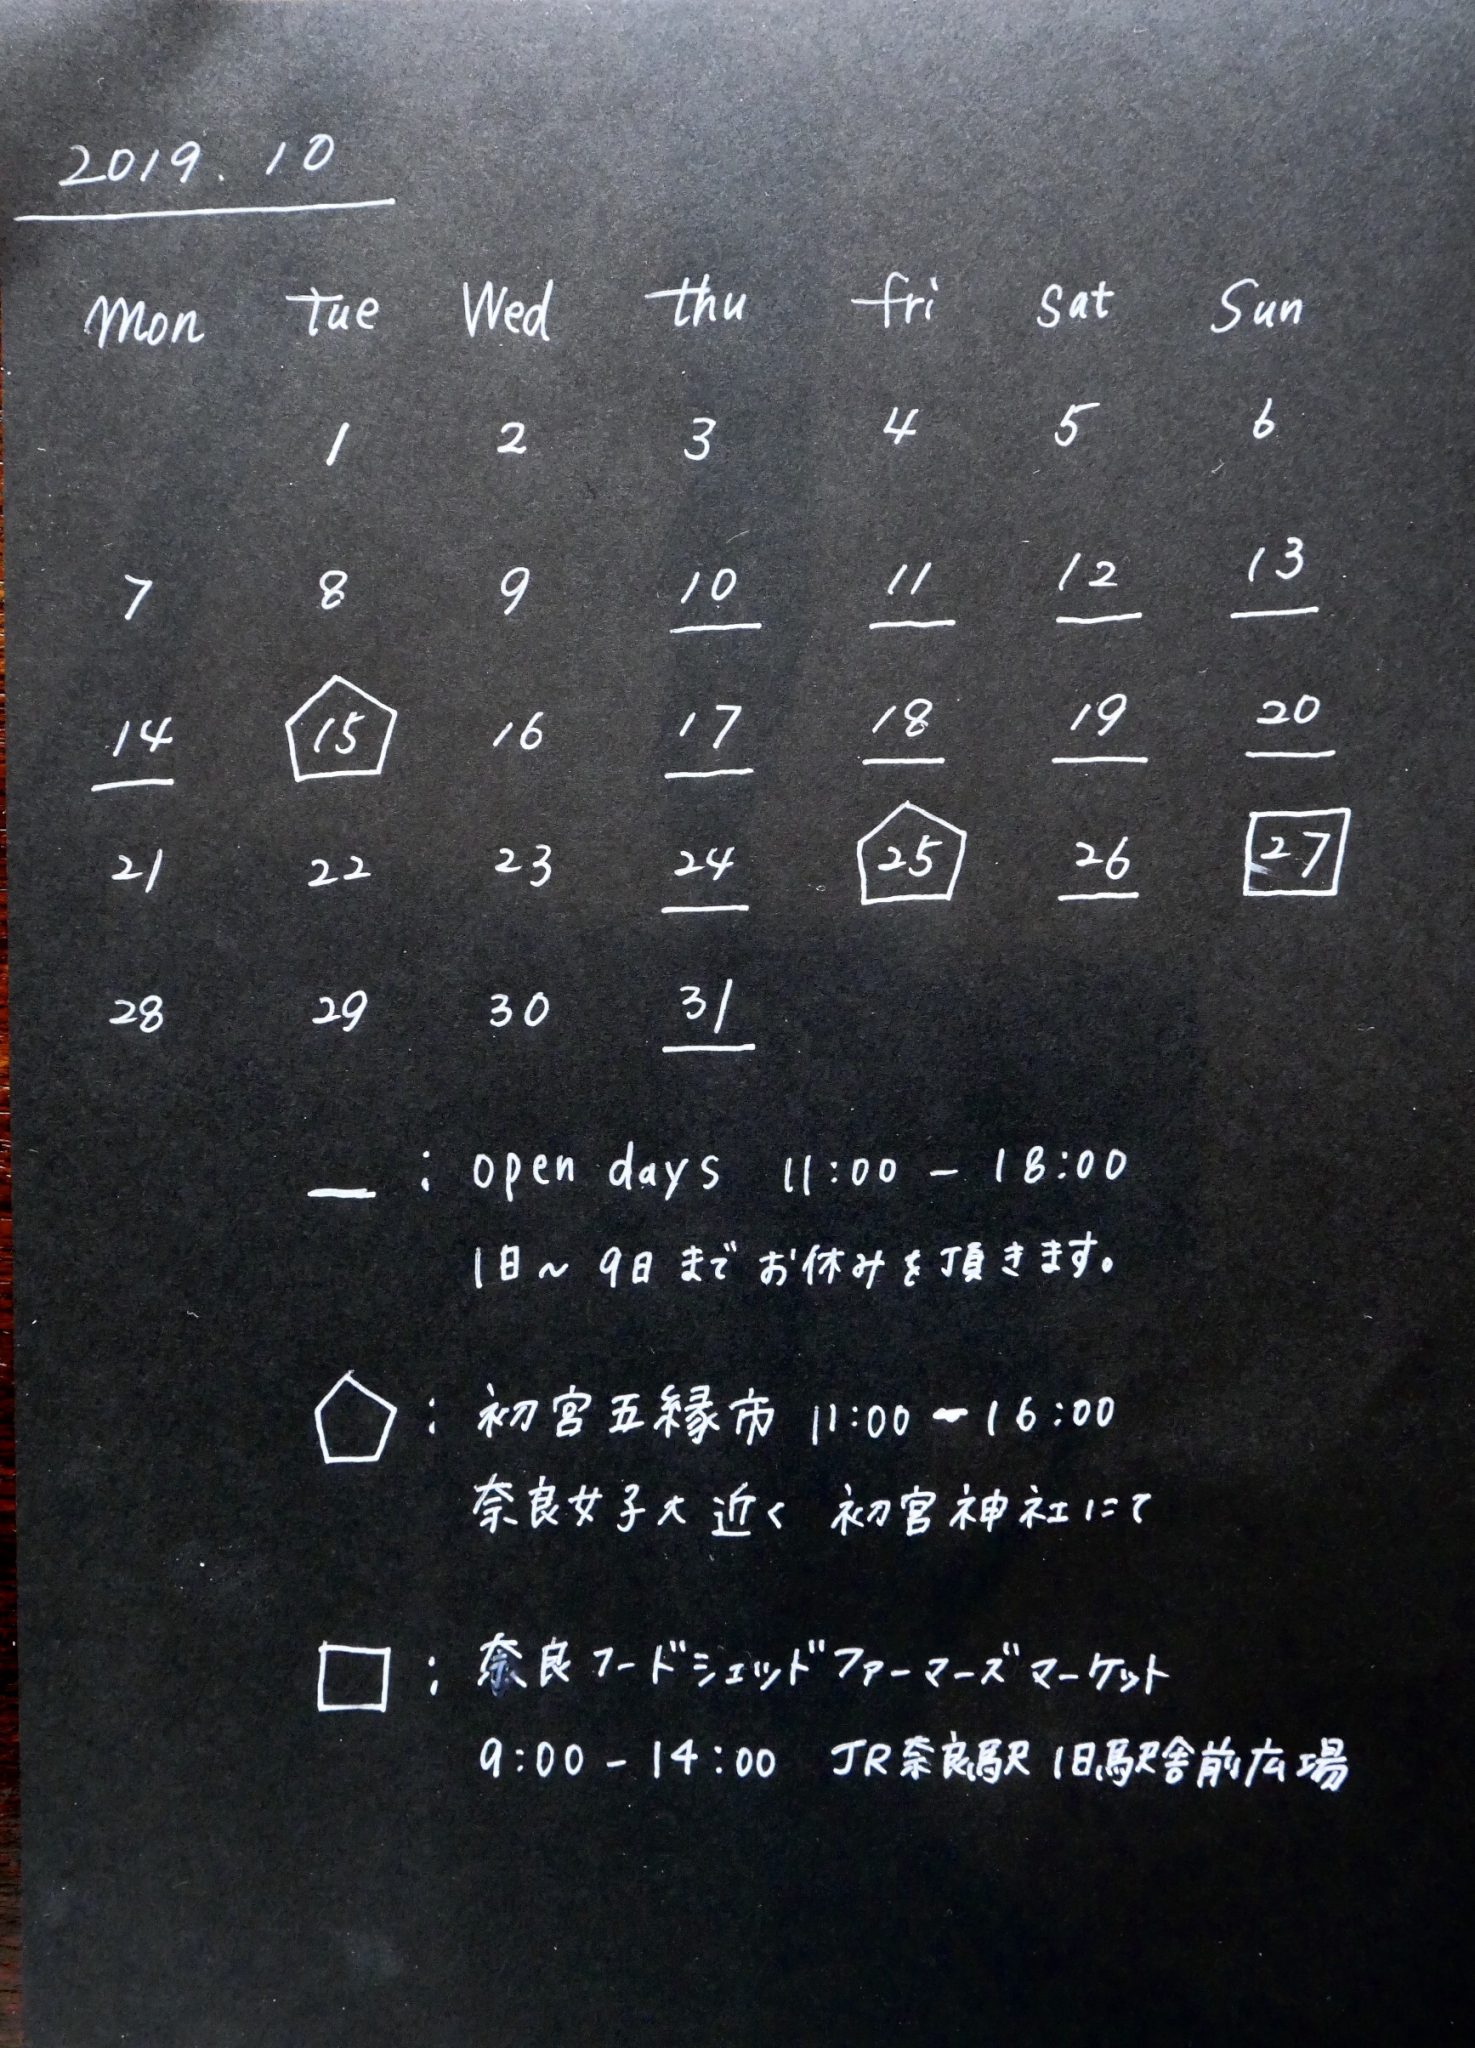 2019. 10
Mon Tue Wed thu fri Sat Sun
1 2 3 4 5 6
7 8 9 10 11 12 13
14 15 16 17 18 19 20
21 22 23 24 25 26 27
28 29 30 31
: open days 11:00 - 18:00
1日〜9日までお休みを頂きます。
: 初宮五縁市 11:00 - 16:00
奈良女子大近く 初宮神社にて
: 奈良フードシェッドファーマーズマーケット
9:00 - 14:00 JR奈良駅 旧駅舎前広場